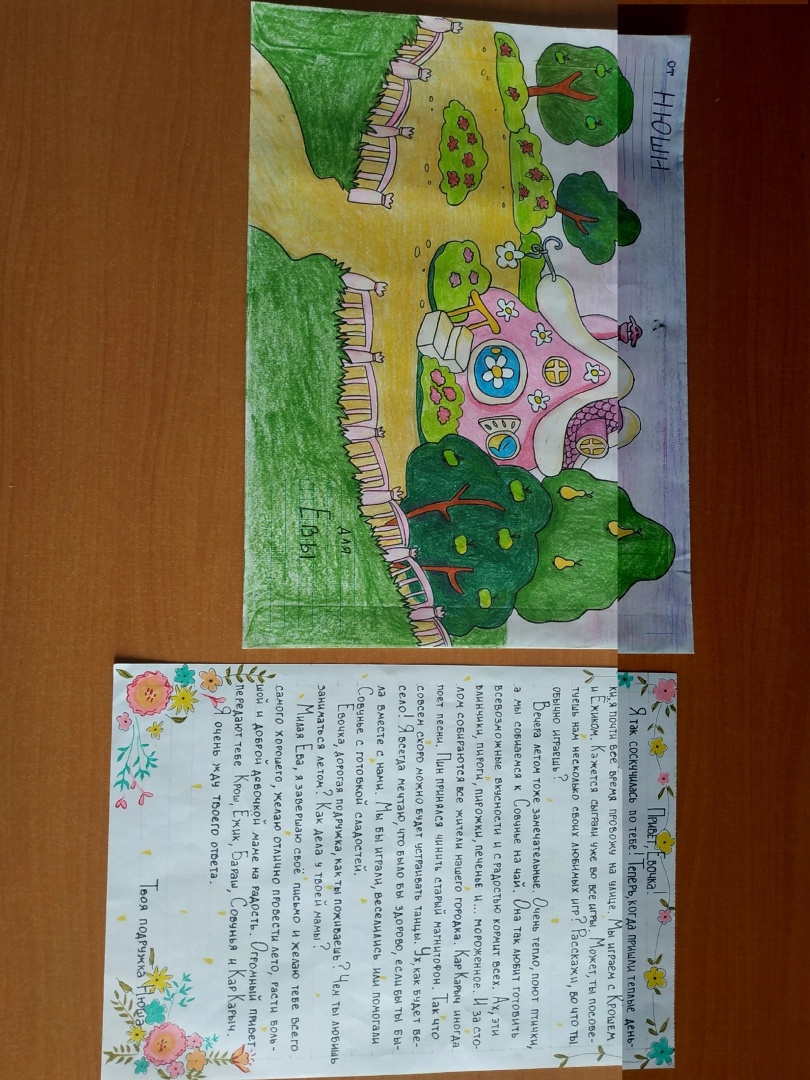 от НЮШИ
для
Евы
Привет, Евочка!
Я так соскучилась по тебе! Теперь, когда пришли теплые день-
ки, я почти всё время провожу на улице. Мы играем с Крошем
и Ёжиком. Кажется сыграли уже во все игры. Может, ты посове-
туешь нам несколько своих любимых игр? Расскажи, во что ты
обычно играешь?
Вечера летом тоже замечательные. Очень тепло, поют птички,
а мы собиаемся к Совунье на чай. Она так любит готовить
всевозможные вкусности и с радостью кормит всех. Ах, эти
блинчики, пироги, пирожки, печенье и... мороженное. И за сто-
лом собираются все жители нашего городка. КарКарыч иногда
поет песни. Пин принялся чинить старый магнитофон. Так что
совсем скоро можно будет устраивать танцы. Ух, как будет ве-
село! Я всегда мечтаю, что было бы здорово, если бы ты бы-
ла вместе с нами. Мы бы играли, веселились или помогали
Совунье с готовкой сладостей.
Евочка, дорогая подружка, как ты поживаешь? Чем ты любишь
заниматься летом? Как дела у твоей мамы?
Милая Ева, я завершаю своё письмо и желаю тебе всего
самого хорошего, желаю отлично провести лето, расти боль-
шой и доброй девочкой маме на радость. Огромный привет
передают тебе Крош, Ёжик, Бараш, Совунья и КарКарыч.
Я очень жду твоего ответа.
Твоя подружка Нюша